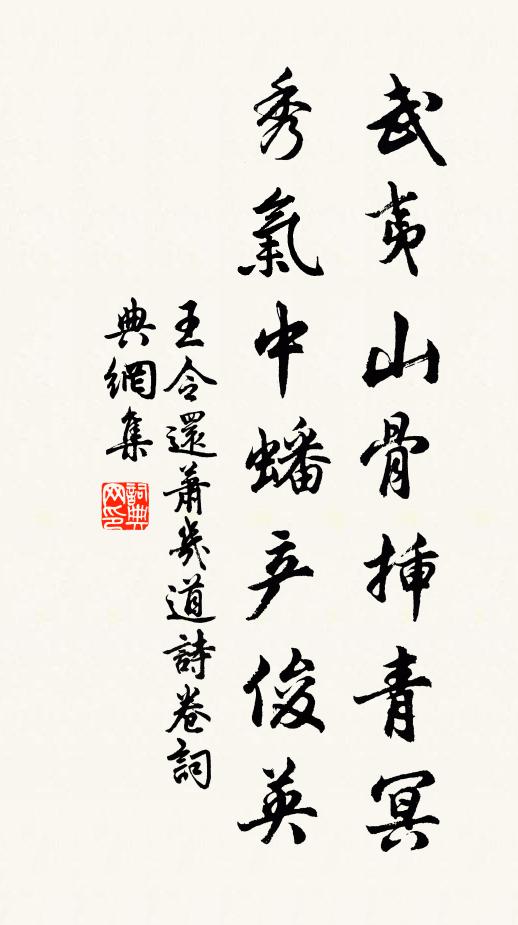 武夷山骨插青冥
秀氣中蟠产俊英
王令還蕭幾道詩卷詞
典網集
詞典網印